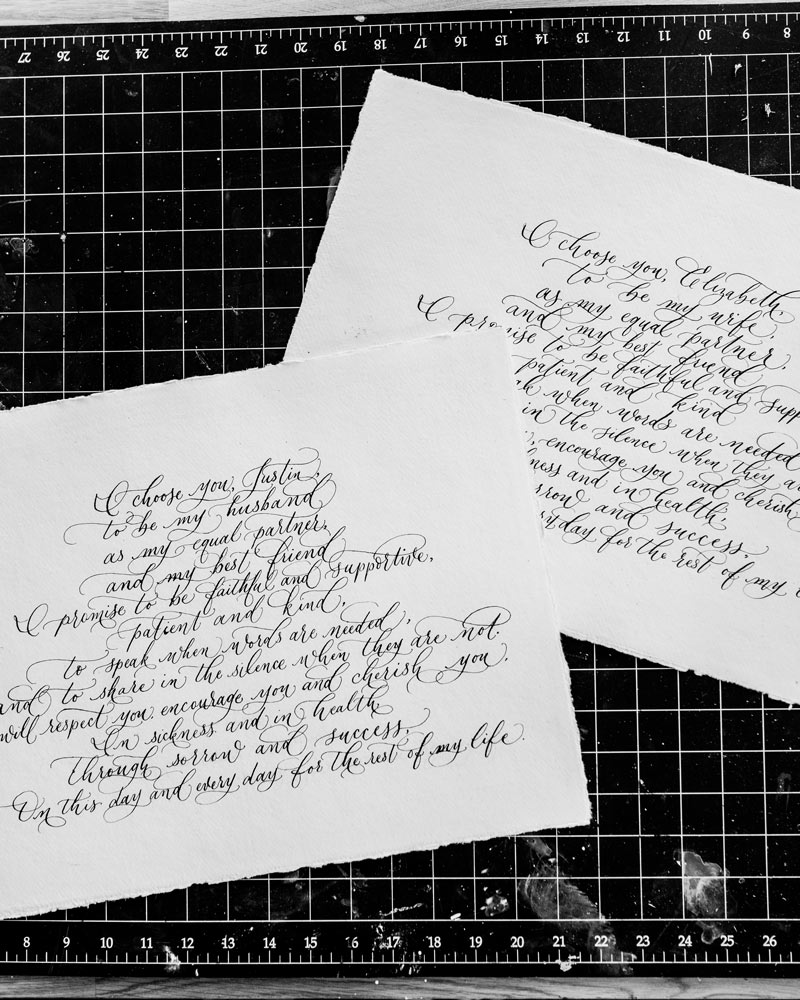 27 26 25 24 23 22 21 20 19 18 17 16 15 14 13 12 11 10 9 8
I choose you, Elizabeth,
to be my wife,
as my equal partner,
and my best friend
I promise to be faithful and supp
patient and kind
ak when words are needed
in the silence when they a
encourage you and cherish
ness and in health,
rrow and success,
y day for the rest of my l
I choose you, Justin,
to be my husband
as my equal partner,
and my best friend
I promise to be faithful and supportive,
patient and kind,
to speak when words are needed,
and to share in the silence when they are not.
will respect you, encourage you and cherish you,
In sickness and in health,
through sorrow and success,
On this day and every day for the rest of my life.
8 9 10 11 12 13 14 15 16 17 18 19 20 21 22 23 24 25 26